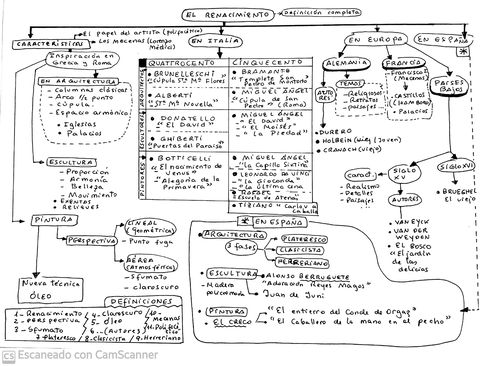 EL RENACIMIENTO → Definición completa
El papel del artista (polifacético)
Los mecenas (Lorenzo Médici)
CARACTERÍSTICAS
Inspiración en Grecia y Roma
EN ARQUITECTURA
- Columnas clásicas
- Arco 1/2 punto
- Cúpula
- Espacio armónico
- Iglesias
- Palacios
ESCULTURA
- Proporción
- Armonía
- Belleza
- Movimiento
- EXENTAS
- RELIEVES
PINTURA
PERSPECTIVA
LINEAL (geométrica)
- Punto fuga
AÉREA (atmosférica)
- Sfumato
- claroscuro
Nueva técnica
ÓLEO
DEFINICIONES
1- Renacimiento
2- PERSPECTIVA
3- Sfumato
4- Claroscuro
5- Óleo
6- (Autores)
7- Plateresco
8- Clasicista
9- Herreriano
10- Mecenas
EN ITALIA
QUATTROCENTO
CINQUECENTO
ARQUITECTOS
• BRUNELLESCHI
"Cúpula Stª Mª Flores"
• ALBERTI
"Stª Mª Novella"
• BRAMANTE
"Templete San Pedro de Montorio"
• MIGUEL ÁNGEL
"Cúpula de San Pedro" (Roma)
ESCULTORES
• DONATELLO
"El David"
• GHIBERTI
"Puertas del Paraíso"
• MIGUEL ÁNGEL
- "El David"
- "El Moisés"
- "La Piedad"
PINTORES
• BOTTICELLI
"El nacimiento de Venus"
"Alegoría de la Primavera"
• MIGUEL ÁNGEL
- "La Capilla Sixtina"
• LEONARDO DA VINCI
- "La Gioconda"
- "La Última Cena"
• RAFAEL
"Escuela de Atenas"
• TIZIANO "Carlos V a caballo"
EN EUROPA
ALEMANIA
TEMAS
- Religiosos
- Retratos
- paisajes
AUTORES
• DURERO
• HOLBEIN (Joven)
• CRANACH (Viejo)
FRANCIA
Francisco I
(Mecenas)
- CASTILLOS
(CHAMBORD)
- Palacios
PAÍSES Bajos
SIGLO XV
caract.
- Realismo
- Detalles
- Paisajes
AUTORES
• VAN EYCK
• VAN DER WEYDEN
• EL BOSCO
"El jardín de las delicias"
SIGLO XVI
• BRUEGHEL El viejo
EN ESPAÑA
*
* EN ESPAÑA
• ARQUITECTURA
3 fases
PLATERESCO
CLASICISTA
HERRERIANO
• ESCULTURA
- Madera policromada
Alonso BERRUGUETE
"Adoración Reyes Magos"
Juan de Juni
• PINTURA
EL GRECO
- "El entierro del Conde de Orgaz"
- "El Caballero de la mano en el pecho"
CS Escaneado con CamScanner